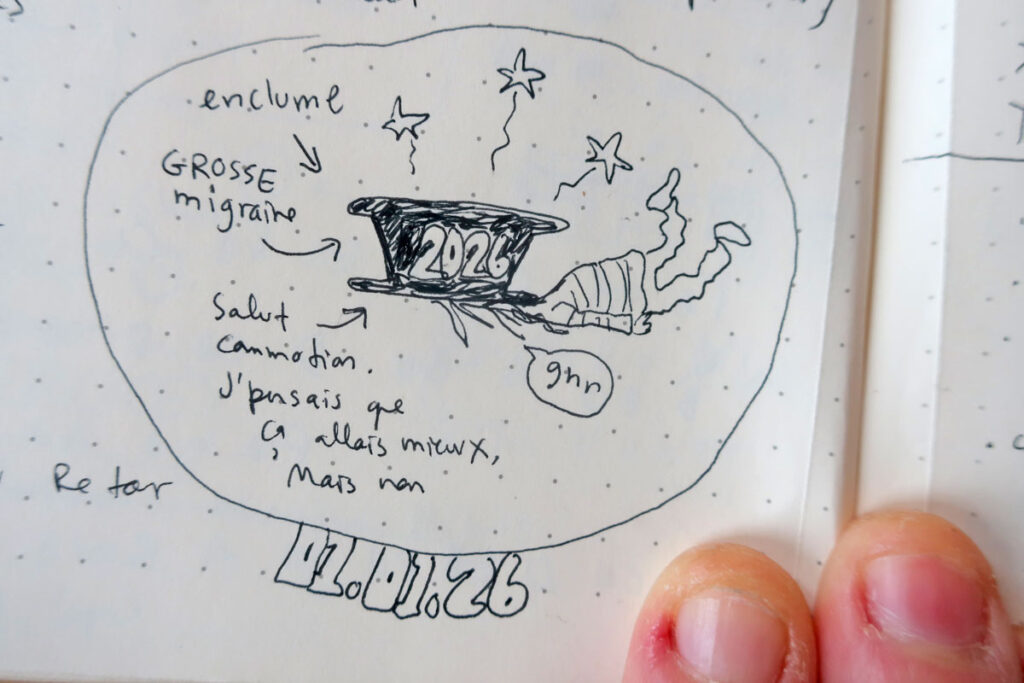 enclume
GROSSE
migraine
2026
Salut
commotion.
J'pensais que
ça allais mieux,
Mais non
ghn
Retar
01.01.26